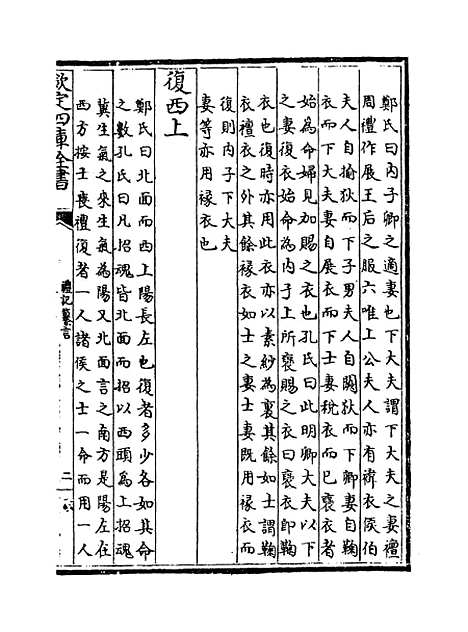 鄭氏曰内子卿之適妻也下大夫謂下大夫之妻禮
周禮作展王后之服六唯上公夫人亦有褘衣侯伯
夫人自揄狄而下子男夫人自闕狄而下卿妻自鞠
衣而下大夫妻自展衣而下士妻税衣而已褒衣者
始為命婦見加賜之衣也孔氏曰此明卿大夫以下
之妻復衣始命為内子上所褒賜之衣曰褒衣即鞠
衣也復時亦用此衣亦以素紗為裏其餘如士謂鞠
衣禮衣之外其餘褖衣如士之妻士妻既用褖衣而
復則内子下大夫
妻等亦用褖衣也
復西上
鄭氏曰北面而西上陽長左也復者多少各如其命
之數孔氏曰凡招魂皆北面而招以西頭為上招魂
冀生氣之來生氣為陽又北面言之南方是陽左在
西方按士喪禮復者一人諸侯之士一命而用一人
欽定四庫全書
禮記纂言
二